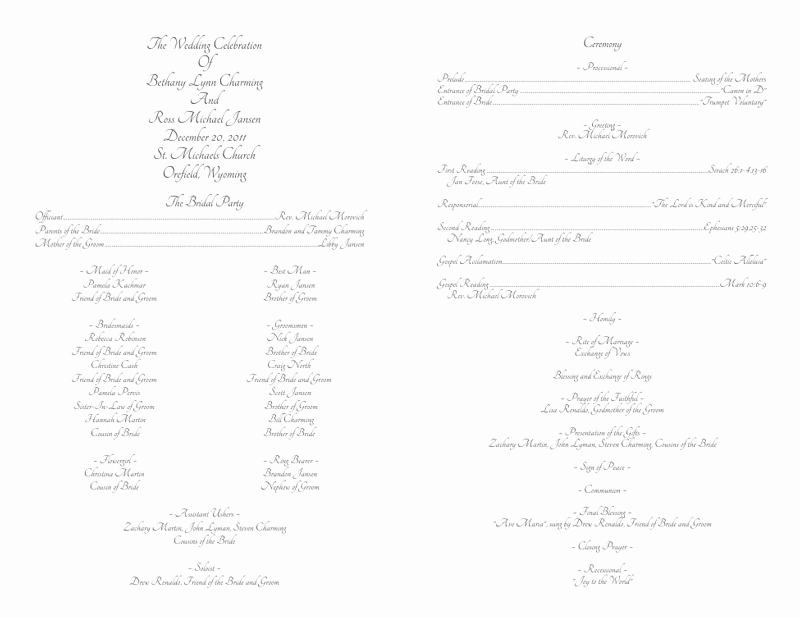 The Wedding Celebration
Of
Bethany Lynn Charming
And
Ross Michael Jansen
December 20, 2011
St. Michaels Church
Orefield, Wyoming
The Bridal Party
Officiant......Rev. Michael Morovich
Parents of the Bride......Brandon and Tammy Charming
Mother of the Groom......Libby Jansen
~ Maid of Honor ~
Pamela Kachmar
Friend of Bride and Groom
~ Best Man ~
Ryan Jansen
Brother of Groom
~ Bridesmaids ~
Rebecca Robinson
Friend of Bride and Groom
Christine Cash
Friend of Bride and Groom
Pamela Pervis
Sister-In-Law of Groom
Hannah Martin
Cousin of Bride
~ Groomsmen ~
Nick Jansen
Brother of Bride
Craig North
Friend of Bride and Groom
Scott Jansen
Brother of Groom
Bill Charming
Brother of Bride
~ Flowergirl ~
Christina Martin
Cousin of Bride
~ Ring Bearer ~
Brandon Jansen
Nephew of Groom
~ Assistant Ushers ~
Zachary Martin, John Lyman, Steven Charming
Cousins of the Bride
~ Soloist ~
Drew Renalds, Friend of the Bride and Groom
Ceremony
~ Processional ~
Prelude......Seating of the Mothers
Entrance of Bridal Party......"Canon in D"
Entrance of Bride......"Trumpet Voluntary"
~ Greeting ~
Rev. Michael Morovich
~ Liturgy of the Word ~
First Reading......Sirach 26:1-4,13-16
Jan Feese, Aunt of the Bride
Responsorial......"The Lord is Kind and Merciful"
Second Reading......Ephesians 5:29,25-32
Nancy Long, Godmother/Aunt of the Bride
Gospel Acclamation......"Celtic Alleluia"
Gospel Reading......Mark 10:6-9
Rev. Michael Morovich
~ Homily ~
~ Rite of Marriage ~
Exchange of Vows
Blessing and Exchange of Rings
~ Prayer of the Faithful ~
Lisa Renalds, Godmother of the Groom
~ Presentation of the Gifts ~
Zachary Martin, John Lyman, Steven Charming, Cousins of the Bride
~ Sign of Peace ~
~ Communion ~
~ Final Blessing ~
"Ave Maria", sung by Drew Renalds, Friend of Bride and Groom
~ Closing Prayer ~
~ Recessional ~
"Joy to the World"